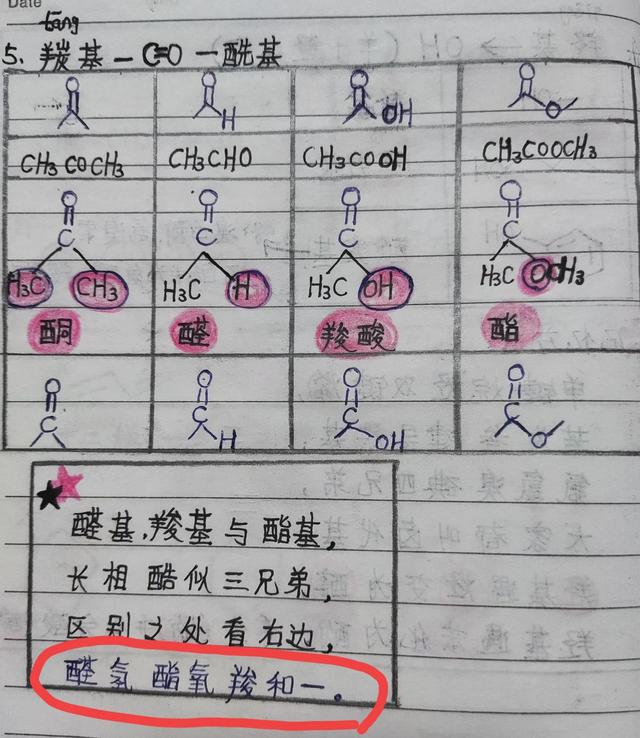 Date
tāng
5. 羰基 — C=O — 酰基
O O O O
H OH O
CH3COCH3 CH3CHO CH3COOH CH3COOCH3
O O O O
C C C C
H3C CH3 H3C H H3C OH H3C OCH3
酮 醛 羧酸 酯
O O O O
C C C C
H OH O
醛基,羧基与酯基,
长相酷似三兄弟,
区别之处看右边,
醛氢酯氧羧和一。